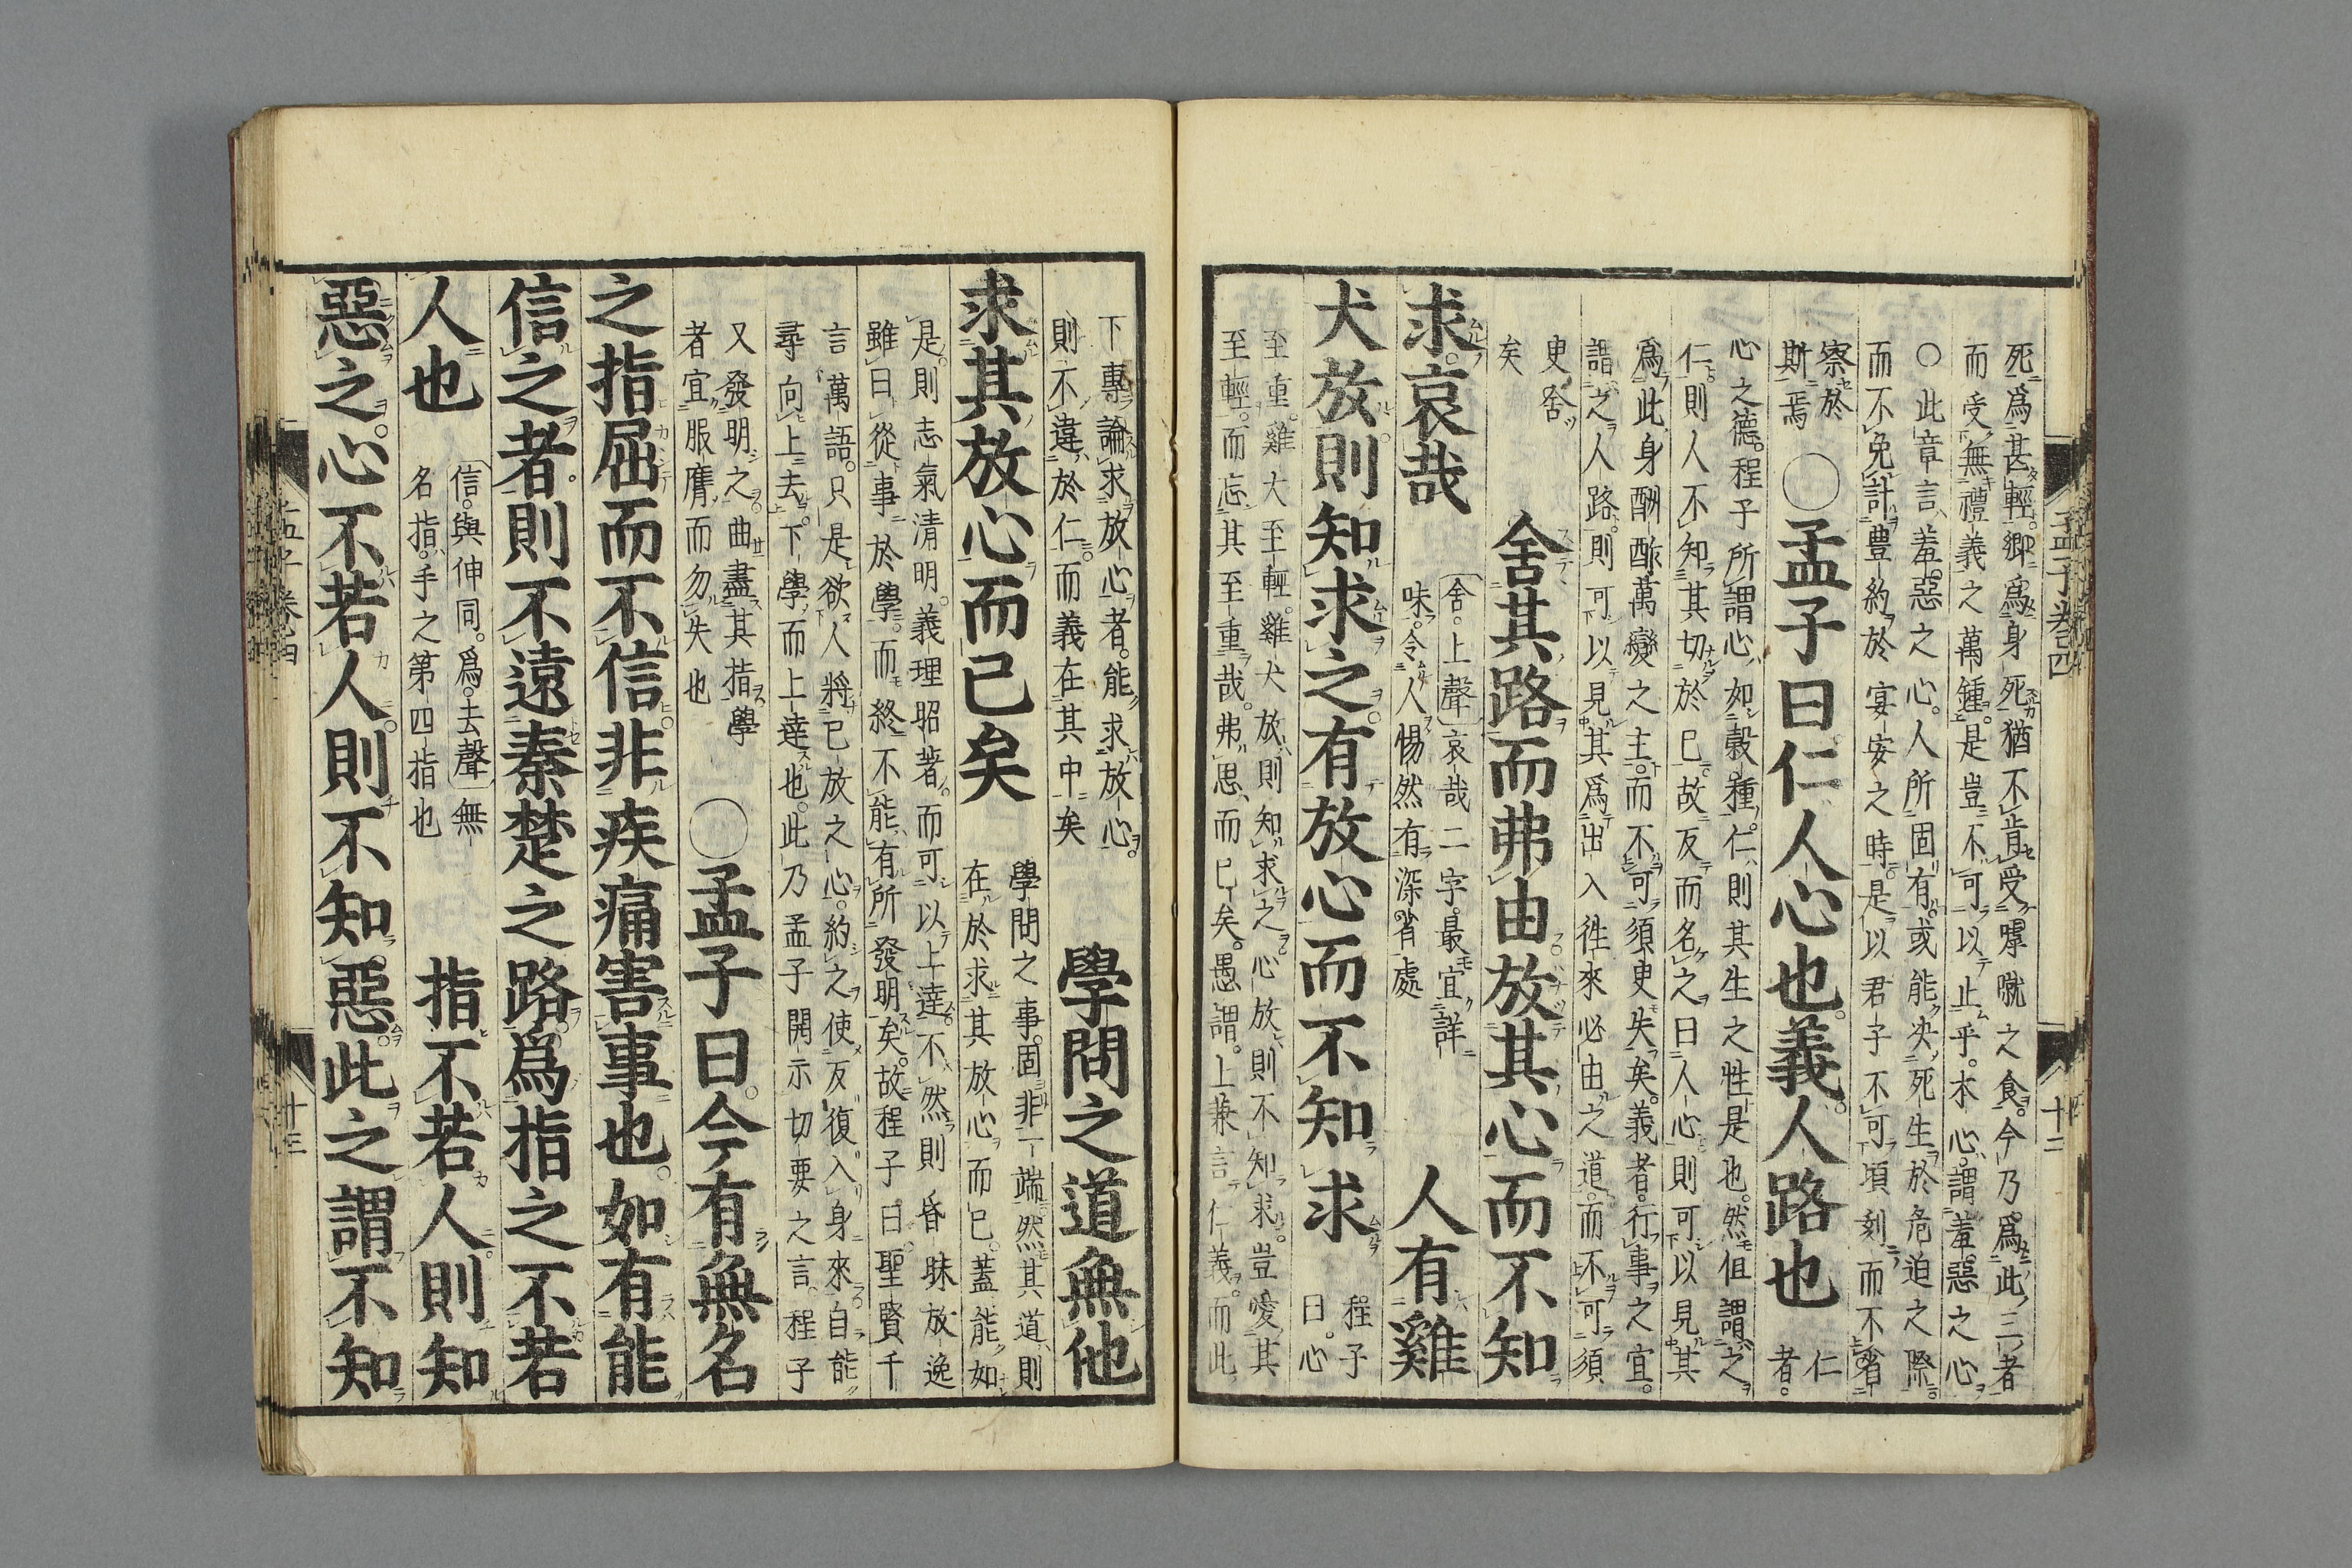 孟子卷四
十二
死爲甚輕。鄉爲身死猶不肯受嘑蹴之食。今乃爲此三者
而受無禮義之萬鍾。是豈不可以止乎。本心。謂羞惡之心
○此章言羞惡之心。人所固有。或能决死生於危迫之際
而不免計豊約於宴安之時。是以君子不可頃刻而不省
察於
斯焉
○孟子曰仁人心也。義人路也
仁
者。
心之德。程子所謂心如榖種。仁則其生之性是也。然但謂之
仁則人不知其切於己。故反而名之曰人心。則可以見其
爲此身酬酢萬變之主。而不可須臾失矣。義者行事之宜。
謂之人路。則可以見其爲出入徃來必由之道。而不可須
臾舍
矣
舍其路而弗由放其心而不知
求。哀哉
舍。上聲 哀哉二字。最宜詳
味。令人惕然有深省處
人有雞
犬放則知求之。有放心而不知求
程子
曰。心
至重。雞犬至輕。雞犬放則知求之。心放則不知求。豈愛其
至輕。而忘其至重哉。弗思而已矣。愚謂。上兼言仁義。而此
下專論求放心者。能求放心。
則不違於仁。而義在其中矣
學問之道無他
求其放心而已矣
學問之事。固非一端。然其道則
在於求其放心而已。蓋能如
是。則志氣清明。義理昭著。而可以上達。不然則昏昧放逸
雖曰從事於學。而終不能有所發明矣。故程子曰。聖賢千
言萬語。只是欲人將已放之心。約之使反復入身來。自能
尋向上去。下學而上達也。此乃孟子開示切要之言。程子
又發明之。曲盡其指。學
者宜服膺而勿失也
○孟子曰。今有無名
之指屈而不信非疾痛害事也。如有能
信之者。則不遠秦楚之路。爲指之不若
人也
信。與伸同。爲。去聲 無
名指。手之第四指也
指不若人。則知
惡之。心不若人。則不知惡。此之謂不知
孟子卷四
十三